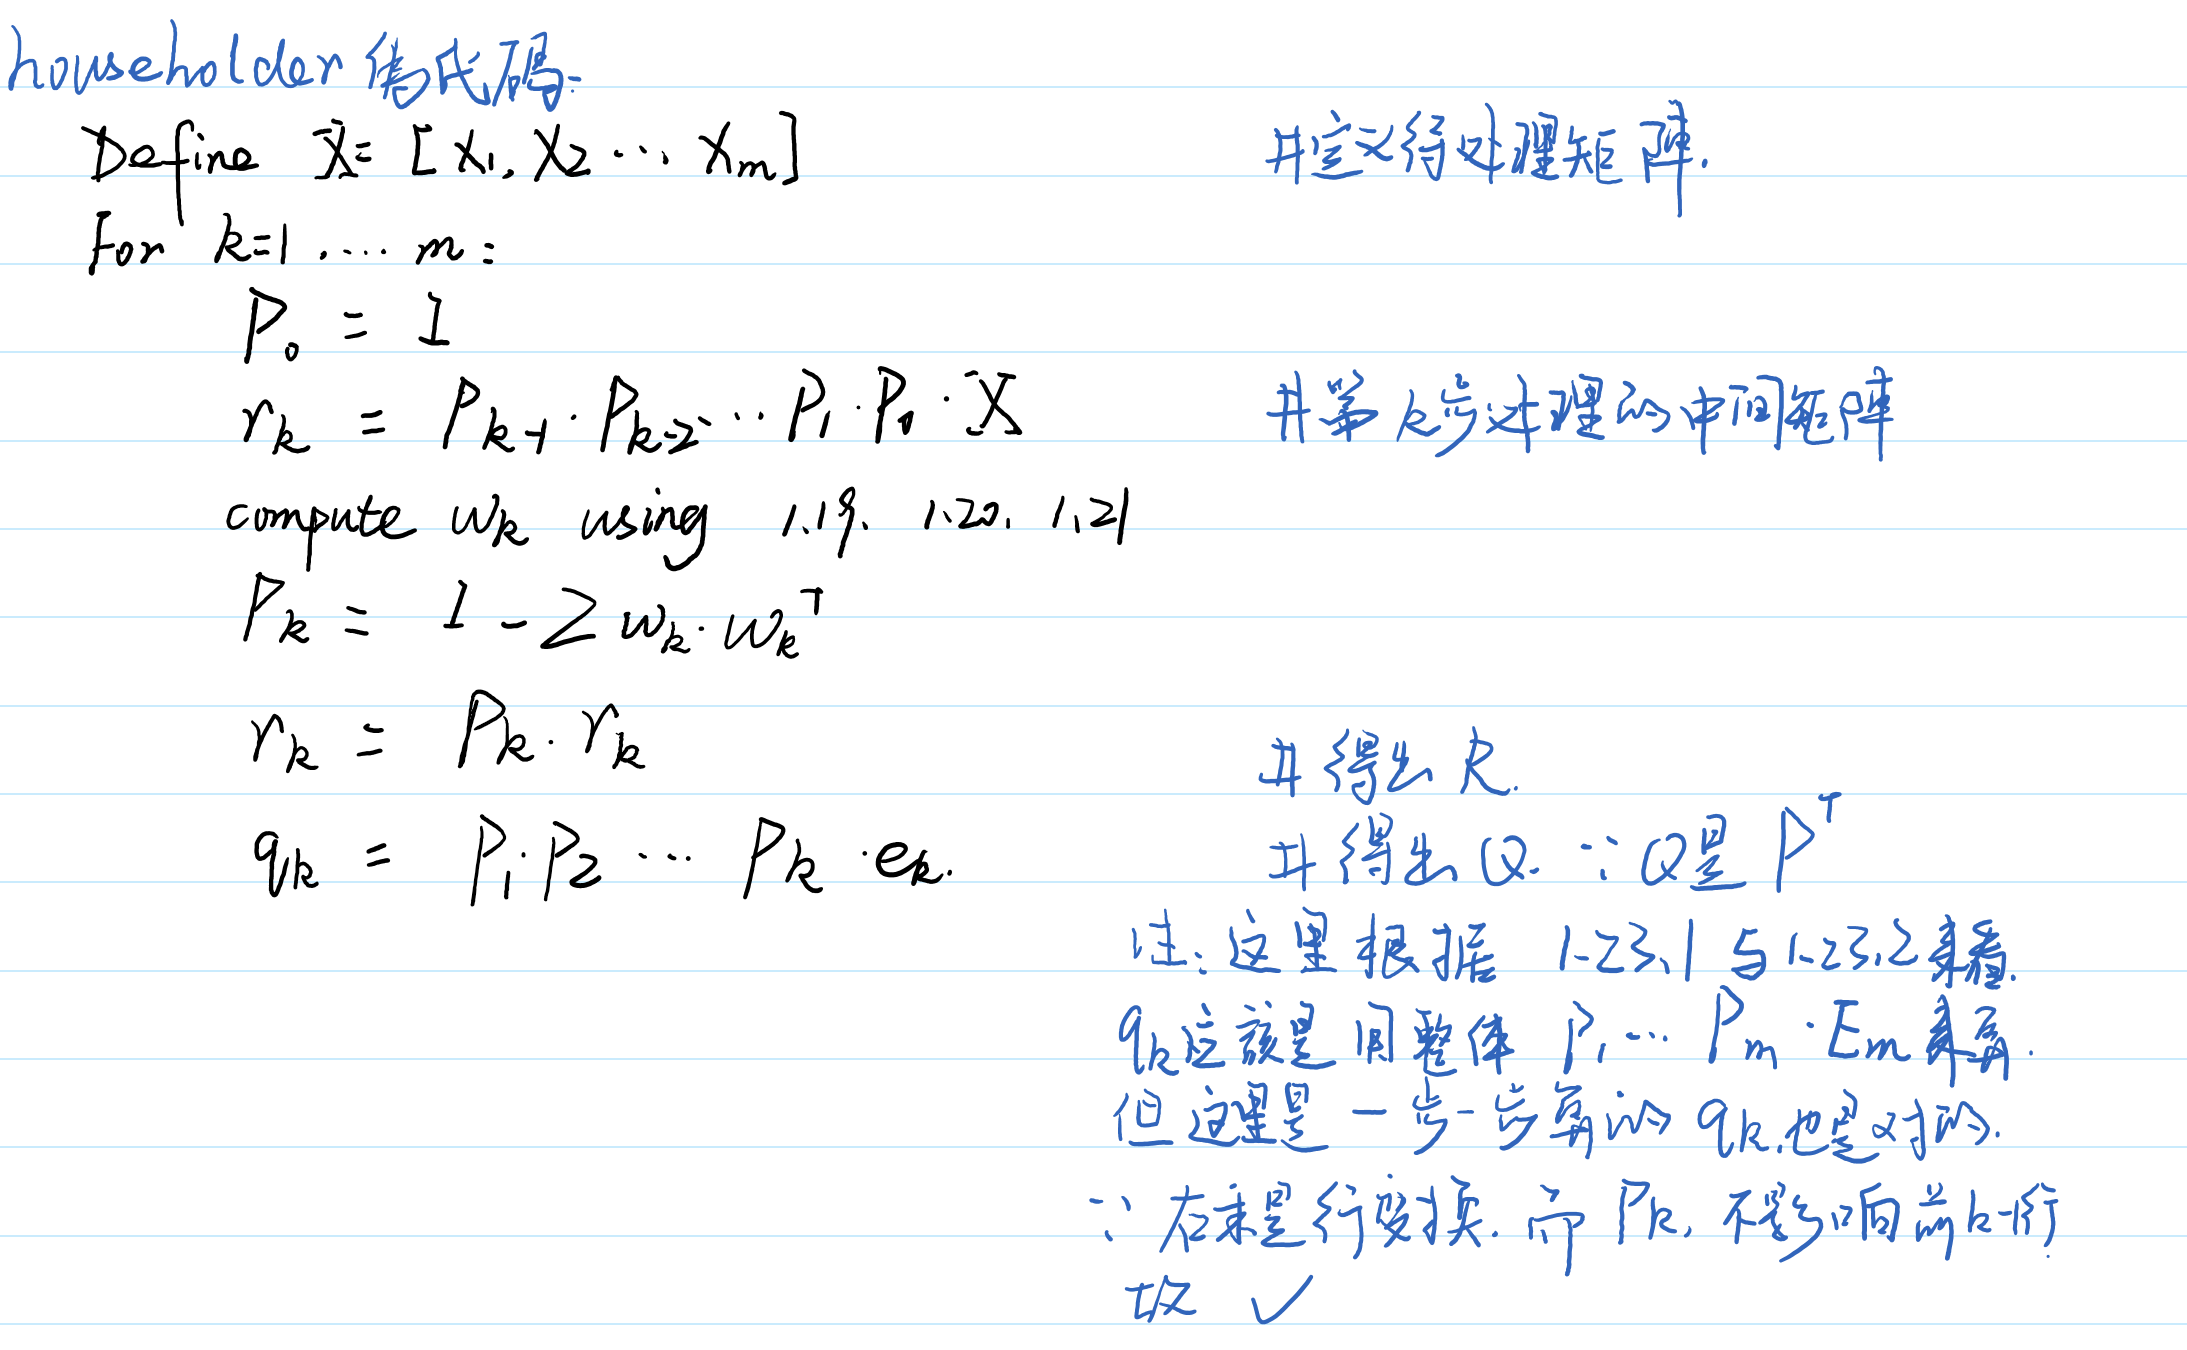 householder 伪代码:
Define X = [x₁, x₂ ⋯ xₘ] #定义待处理矩阵.
For k=1 .... m:
P₀ = I
rₖ = Pₖ₋₁·Pₖ₋₂⋯P₁·P₀·X #第k步处理的中间矩阵
compute wₖ using 1.19. 1.20. 1.21
Pₖ = I - 2wₖ·wₖᵀ
rₖ = Pₖ·rₖ #得出R.
qₖ = P₁·P₂ ⋯ Pₖ·eₖ. #得出Q. ∵Q是Pᵀ
注: 这里根据 1-23.1 与 1-23.2 来看.
qₖ应该是用整体 P₁⋯Pₘ·Eₘ来算.
但这里是一步一步算的 qₖ.也是对的.
∵右乘是行变换.而Pₖ,不影响前k-1行
故 ✓